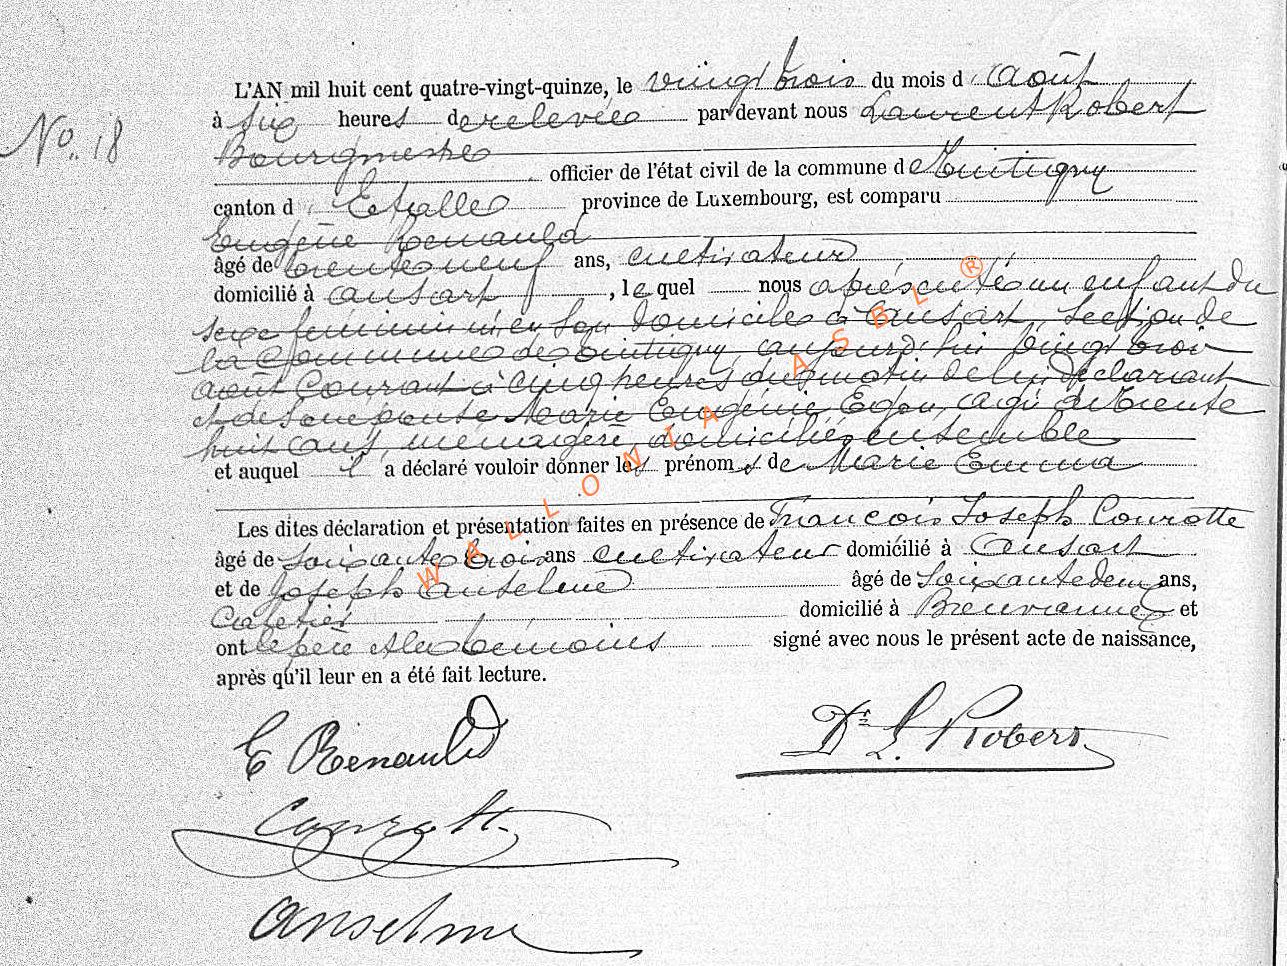 No. 18
L'AN mil huit cent quatre-vingt-quinze, le vingt trois du mois d' Août
à Six heures de relevée par devant nous Laurent Robert
Bourgmestre
officier de l'état civil de la commune de Tintigny
canton d' Etalle province de Luxembourg, est comparu
Eugène Renauld
âgé de trente neuf ans, cultivateur
domicilié à Ansart, lequel nous a présenté un enfant du
sexe féminin né en son domicile à Ansart, section de
la Commune de Tintigny, aujourd'hui vingt trois
août Courant à cinq heures du matin de lui déclarant
et de son épouse Marie Eugénie agée de trente
huit ans, ménagère, domiciliés ensemble
et auquel il a déclaré vouloir donner les prénoms de Marie Emma
Les dites déclaration et présentation faites en présence de François Joseph Courotte
âgé de Soixante trois ans cultivateur domicilié à Ansart
et de Joseph Anselme âgé de Soixante deux ans,
Cafetier domicilié à Breuvanne et
ont le père et les témoins signé avec nous le présent acte de naissance,
après qu'il leur en a été fait lecture.
E Renauld
Dr L. Robert
Courotte
Anselme
WALLONIA ASBL ®